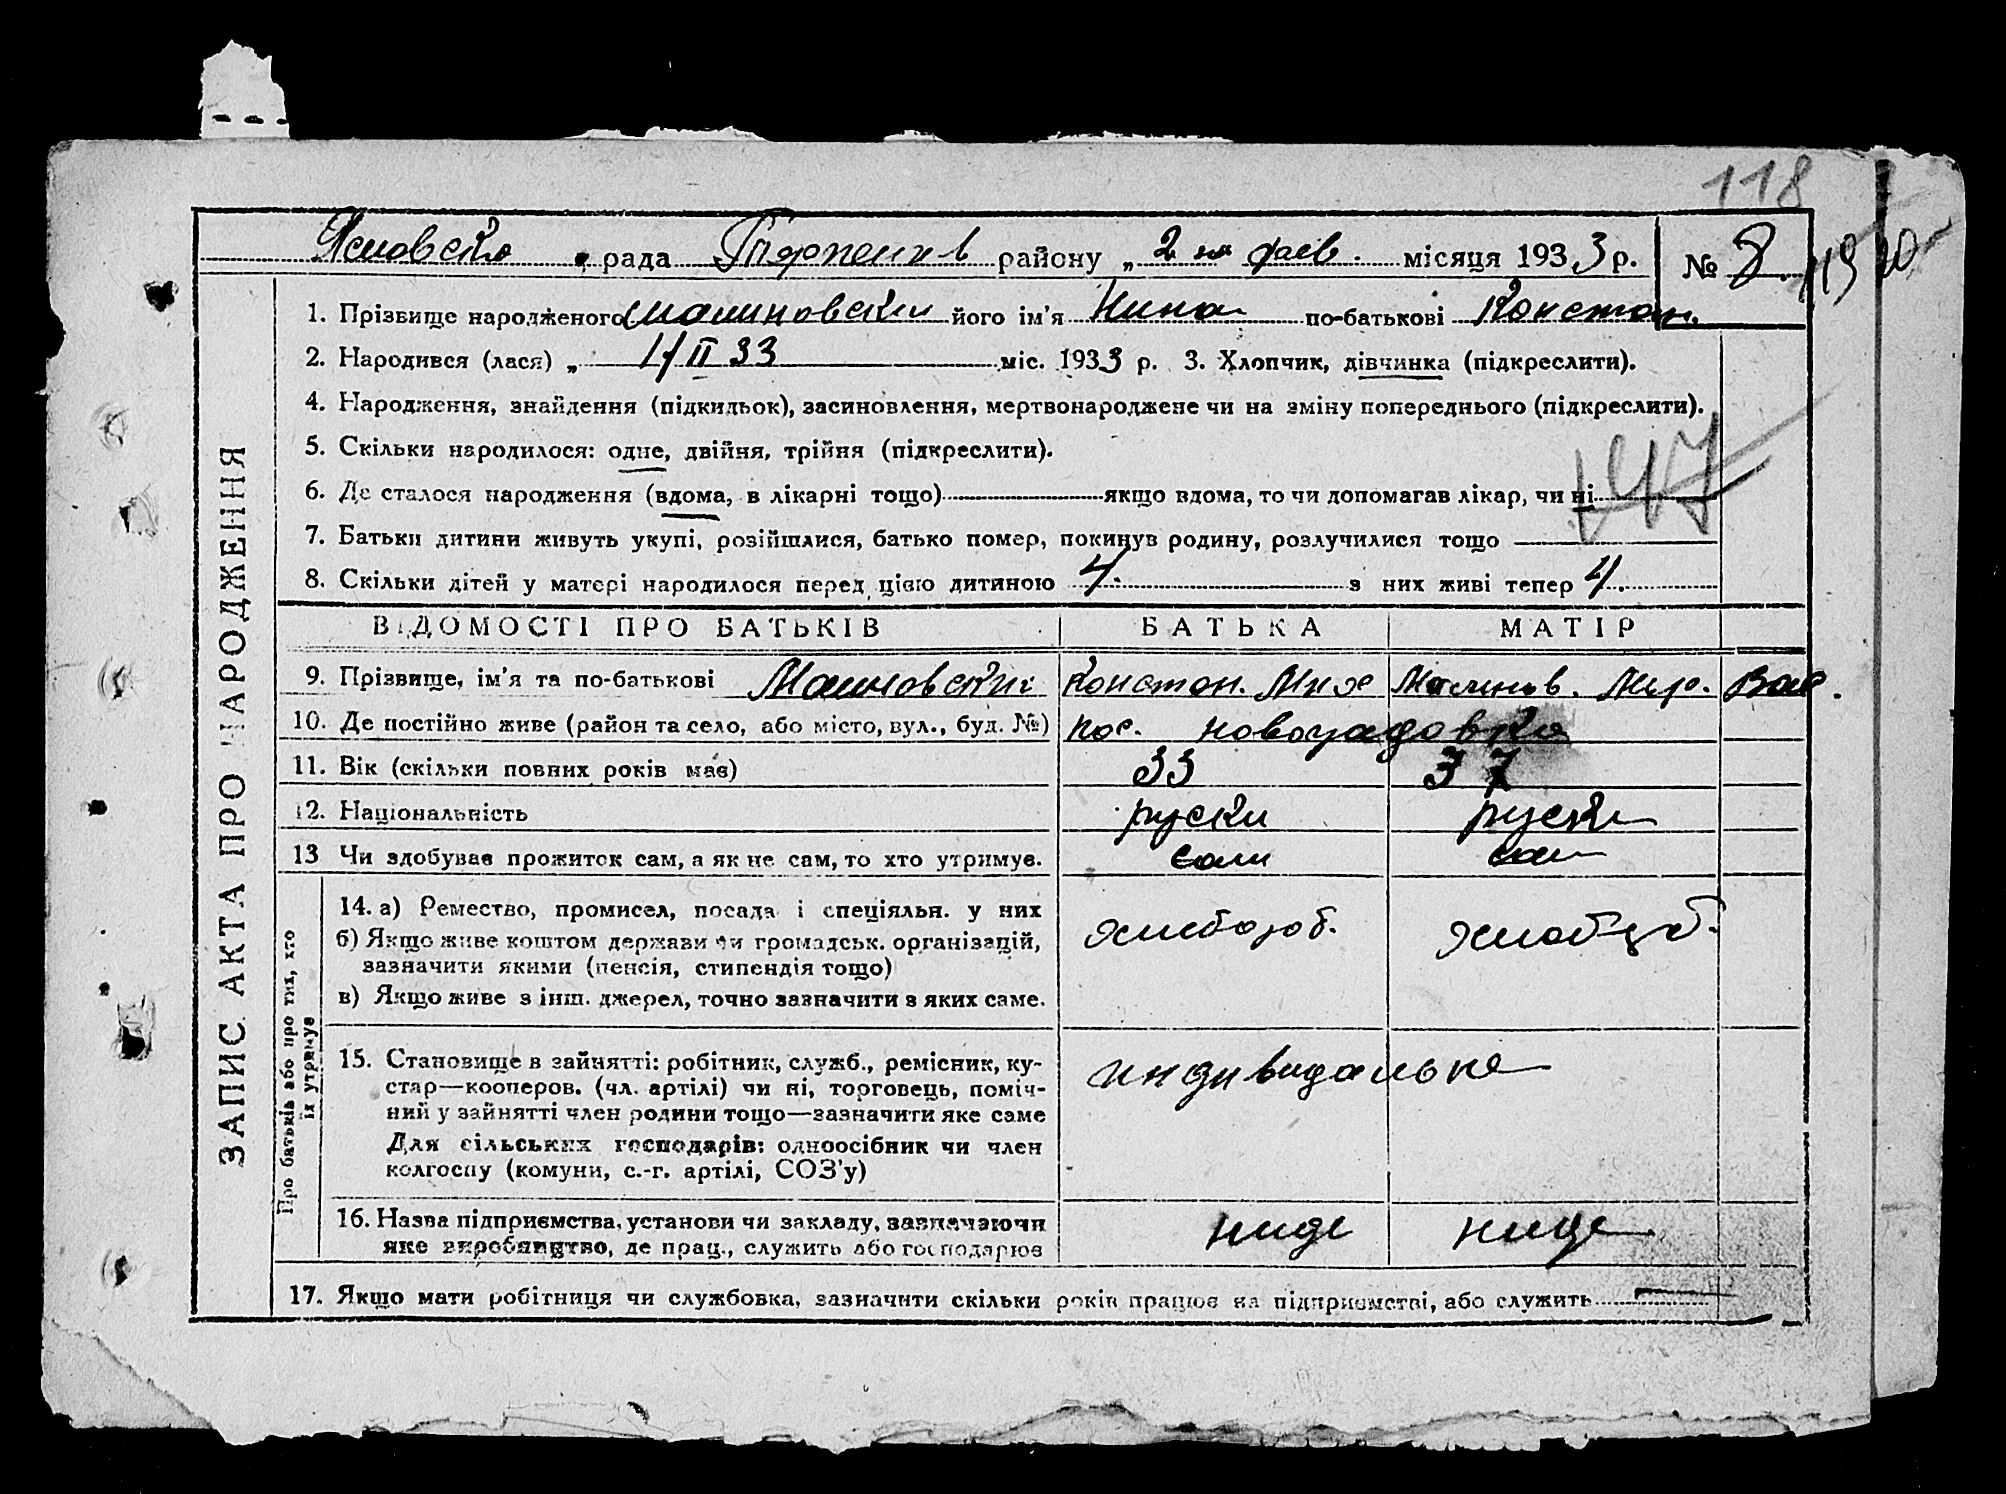 118
рада району „ 2 фев. місяця 1933 р. № 8
1. Прізвище народженого Малиновски його ім'я Нина по-батькові Констан.
2. Народився (лася) „ 1/II 33 міс. 1933 р. 3. Хлопчик, дівчинка (підкреслити).
4. Народження, знайдення (підкидьок), засиновлення, мертвонароджене чи на зміну попереднього (підкреслити).
5. Скільки народилося: одне, двійня, трійня (підкреслити).
147
6. Де сталося народження (вдома, в лікарні тощо) якщо вдома, то чи допомагав лікар, чи ні
7. Батьки дитини живуть укупі, розійшлися, батько помер, покинув родину, розлучилися тощо
8. Скільки дітей у матері народилося перед цією дитиною 4. з них живі тепер 4.
ВІДОМОСТІ ПРО БАТЬКІВ БАТЬКА МАТІР
9. Прізвище, ім'я та по-батькові Малиновский Констан. Мих Малинов. Мар. Вас.
10. Де постійно живе (район та село, або місто, вул., буд. №) пос.
11. Вік (скільки повних років має) 33 37
12. Національність руски руски
13 Чи здобуває прожиток сам, а як не сам, то хто утримує. сам сам
14. а) Ремество, промисел, посада і спеціяльн. у них хлебороб. хлебороб.
б) Якщо живе коштом держави чи громадськ. організацій,
зазначити якими (пенсія, стипендія тощо)
в) Якщо живе з інш. джерел, точно зазначити з яких саме.
15. Становище в зайнятті: робітник, служб., ремісник, ку-
стар—кооперов. (чл. артілі) чи ні, торговець, поміч-
ний у зайнятті член родини тощо—зазначити яке саме
Для сільських господарів: одноосібник чи член
колгоспу (комуни, с.-г. артілі, СОЗ'у)
16. Назва підприємства, установи чи закладу, зазначаючи
яке виробництво, де прац., служить або господарює
17. Якщо мати робітниця чи службовка, зазначити скільки років працює на підприємстві, або служить
ЗАПИС АКТА ПРО НАРОДЖЕННЯ
Про батьків або про тих, хто
їх утримує